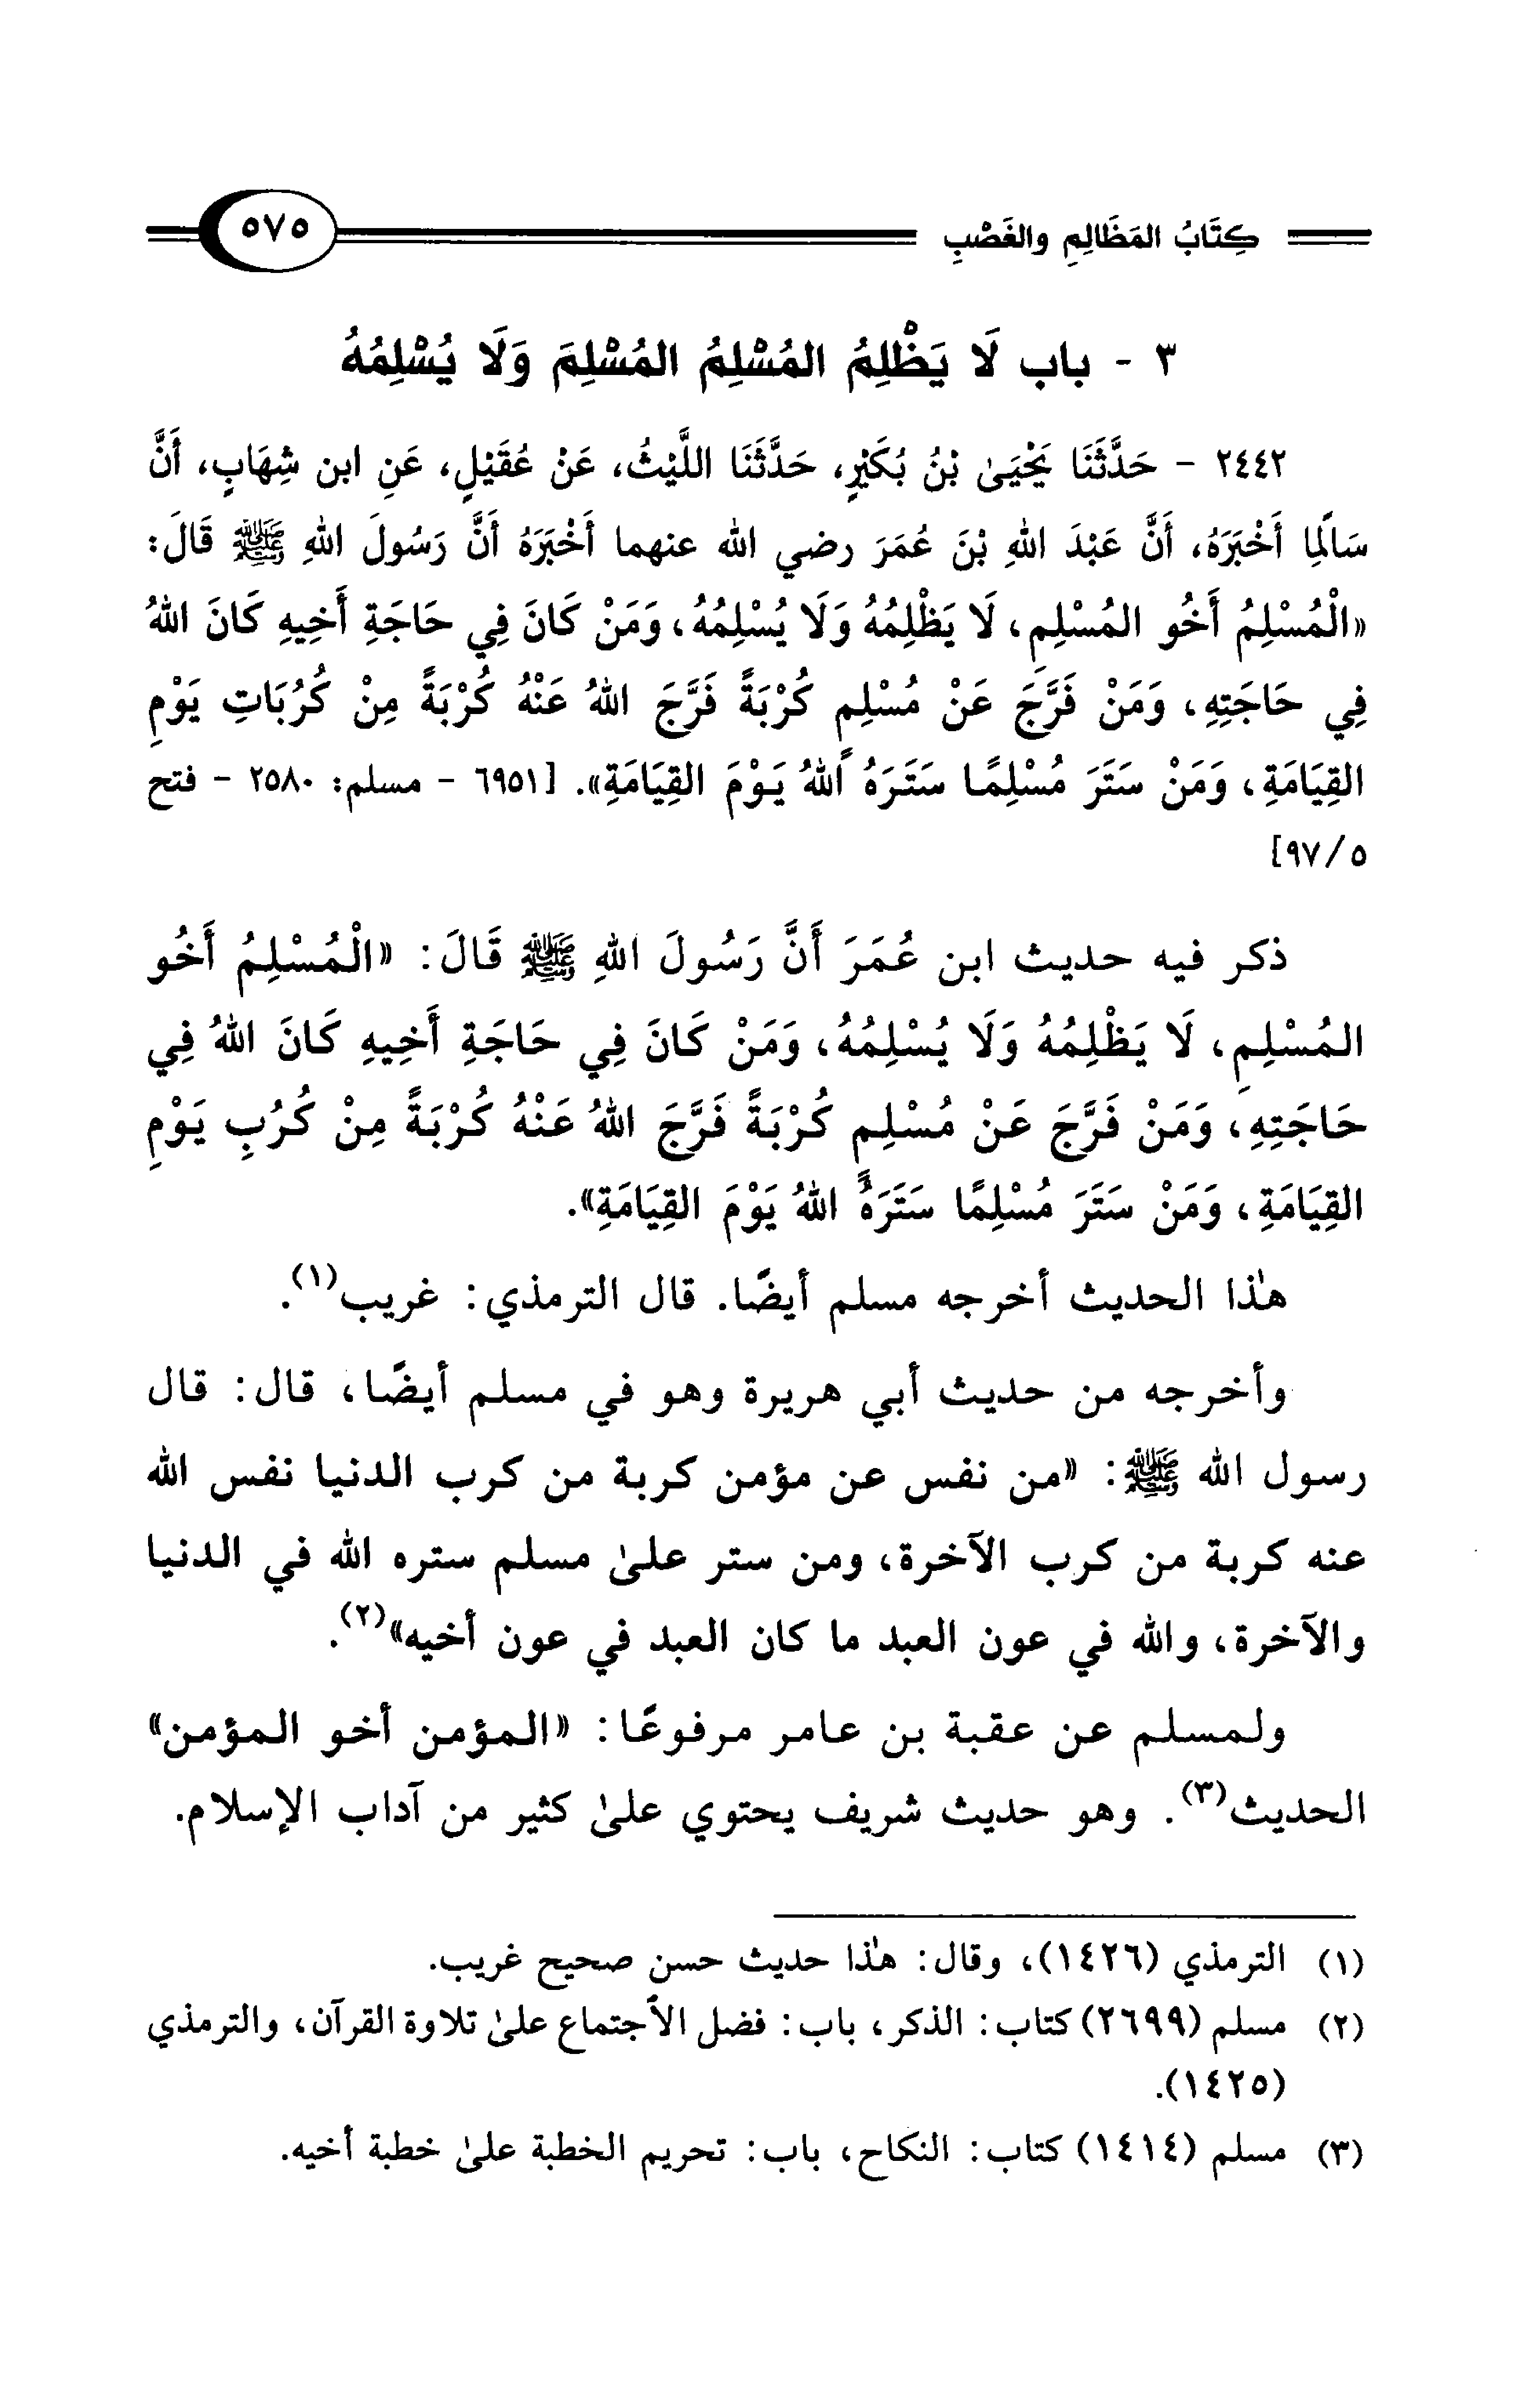 كِتَابُ المَظَالِمِ والغَصْبِ ٥٧٥
٣ - باب لَا يَظْلِمُ المُسْلِمُ المُسْلِمَ وَلَا يُسْلِمُهُ
٢٤٤٢ - حَدَّثَنَا يَحْيَىٰ بْنُ بُكَيْرٍ، حَدَّثَنَا اللَّيْثُ، عَنْ عُقَيْلٍ، عَنِ ابن شِهَابٍ، أَنَّ
سَالِمًا أَخْبَرَهُ، أَنَّ عَبْدَ اللهِ بْنَ عُمَرَ رضي الله عنهما أَخْبَرَهُ أَنَّ رَسُولَ اللهِ ﷺ قَالَ:
«الْمُسْلِمُ أَخُو المُسْلِمِ، لَا يَظْلِمُهُ وَلَا يُسْلِمُهُ، وَمَنْ كَانَ فِي حَاجَةِ أَخِيهِ كَانَ اللهُ
فِي حَاجَتِهِ، وَمَنْ فَرَّجَ عَنْ مُسْلِمٍ كُرْبَةً فَرَّجَ اللهُ عَنْهُ كُرْبَةً مِنْ كُرُبَاتِ يَوْمِ
القِيَامَةِ، وَمَنْ سَتَرَ مُسْلِمًا سَتَرَهُ اللهُ يَوْمَ القِيَامَةِ». [٦٩٥١ - مسلم: ٢٥٨٠ - فتح
٩٧/٥]
ذكر فيه حديث ابن عُمَرَ أَنَّ رَسُولَ اللهِ ﷺ قَالَ: «الْمُسْلِمُ أَخُو
المُسْلِمِ، لَا يَظْلِمُهُ وَلَا يُسْلِمُهُ، وَمَنْ كَانَ فِي حَاجَةِ أَخِيهِ كَانَ اللهُ فِي
حَاجَتِهِ، وَمَنْ فَرَّجَ عَنْ مُسْلِمٍ كُرْبَةً فَرَّجَ اللهُ عَنْهُ كُرْبَةً مِنْ كُرُبِ يَوْمِ
القِيَامَةِ، وَمَنْ سَتَرَ مُسْلِمًا سَتَرَهُ اللهُ يَوْمَ القِيَامَةِ».
هذا الحديث أخرجه مسلم أيضًا. قال الترمذي: غريب(١).
وأخرجه من حديث أبي هريرة وهو في مسلم أيضًا، قال: قال
رسول الله ﷺ: «من نفس عن مؤمن كربة من كرب الدنيا نفس الله
عنه كربة من كرب الآخرة، ومن ستر علىٰ مسلم ستره الله في الدنيا
والآخرة، والله في عون العبد ما كان العبد في عون أخيه»(٢).
ولمسلم عن عقبة بن عامر مرفوعًا: «المؤمن أخو المؤمن»
الحديث(٣). وهو حديث شريف يحتوي علىٰ كثير من آداب الإسلام.
(١) الترمذي (١٤٢٦)، وقال: هذا حديث حسن صحيح غريب.
(٢) مسلم (٢٦٩٩) كتاب: الذكر، باب: فضل الأجتماع علىٰ تلاوة القرآن، والترمذي
(١٤٢٥).
(٣) مسلم (١٤١٤) كتاب: النكاح، باب: تحريم الخطبة علىٰ خطبة أخيه.